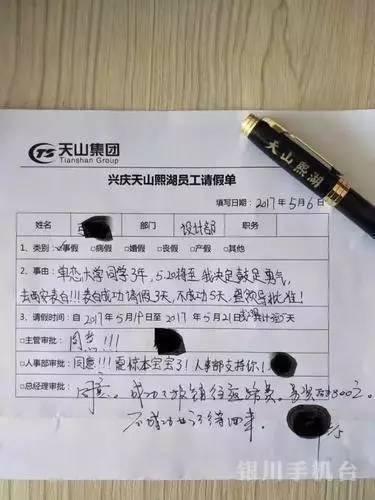 天山集团
Tianshan Group
兴庆天山熙湖员工请假单
填写日期:2017年5月6日
姓名 部门 设计部 职务
1、类别:☑事假 □病假 □婚假 □丧假 □产假 □其他
2、事由:单恋大学同学3年,5.20将至,我决定鼓足勇气,
去西安表白!!!表白成功请假3天,不成功5天,恳领导批准!
3、请假时间:自2017年5月19日至2017年5月21日 共计 5天
□主管审批:同意!!!
□人事部审批:同意!!!愿你本宝宝了!人事部支持你!
□总经理审批:同意。成功了报销往返路费,另奖励800元。
不成功也记得回来。
5/5
天山熙湖
银川手机台